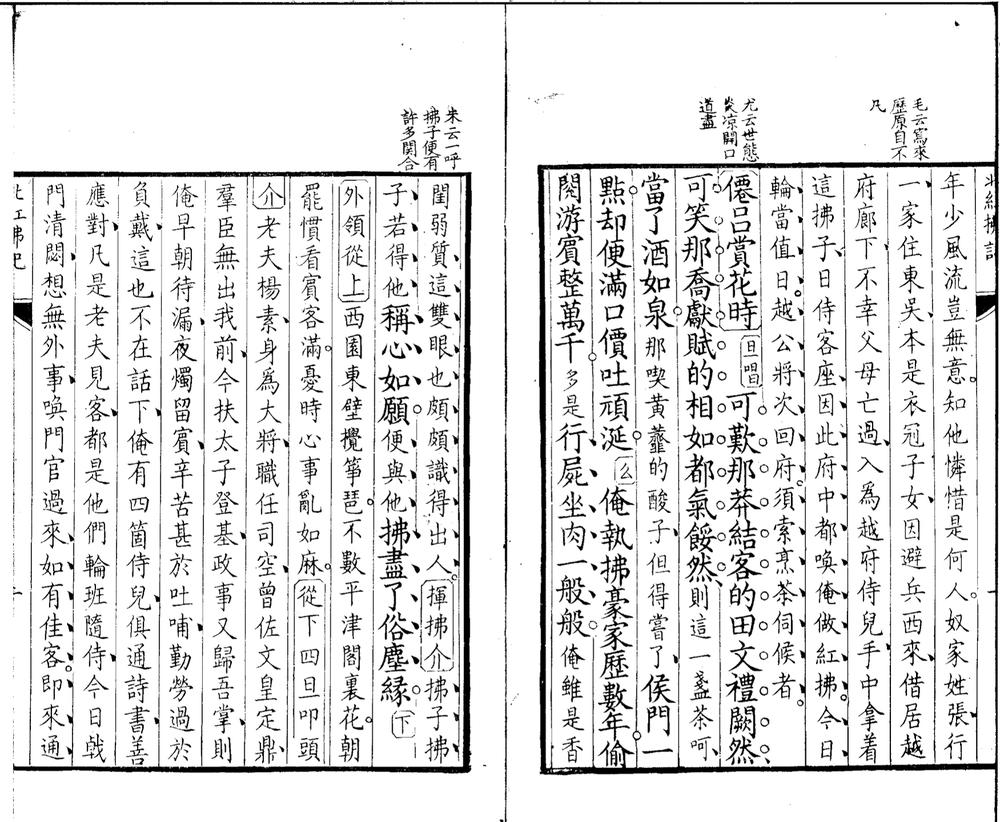 毛云寫來
歷原自不
凡
尤云世態
炎凉開口
道盡
北紅拂記
年少風流豈無意。知他憐惜是何人。奴家姓張行
一家住東吳本是衣冠子女因避兵西來借居越
府廊下不幸父母亡過入爲越府侍兒手中拿着
這拂子日侍客座因此府中都喚俺做紅拂。今日
輪當值日越公將次回府須索烹茶伺候者。
僊呂賞花時 旦唱 可歎那莽結客的田文禮闕然
可笑那喬獻賦的相如都氣餒然則這一盞茶呵
當了酒如泉。那喫黃虀的酸子但得嘗了侯門一
點却便滿口價吐頑涎 么 俺執拂豪家歷數年偷
閱游賓整萬千。多是行屍坐肉一般般。俺雖是香
朱云一呼
拂子便有
許多関合
閨弱質這雙眼也頗頗識得出人。揮拂介 拂子拂
子若得他稱心如願。便與他拂盡了俗塵緣。下
外領從上 西園東壁攪箏琶。不數平津閣裏花。朝
罷慣看賓客滿。憂時心事亂如麻。從下四旦叩頭
介 老夫楊素身爲大將職任司空曾佐文皇定鼎
羣臣無出我前今扶太子登基政事又歸吾掌則
俺早朝待漏夜燭留賓辛苦甚於吐哺勤勞過於
負戴這也不在話下俺有四箇侍兒俱通詩書善
應對凡是老夫見客都是他們輪班隨侍今日戟
門清閟想無外事喚門官過來如有佳客。即來通
北紅拂記